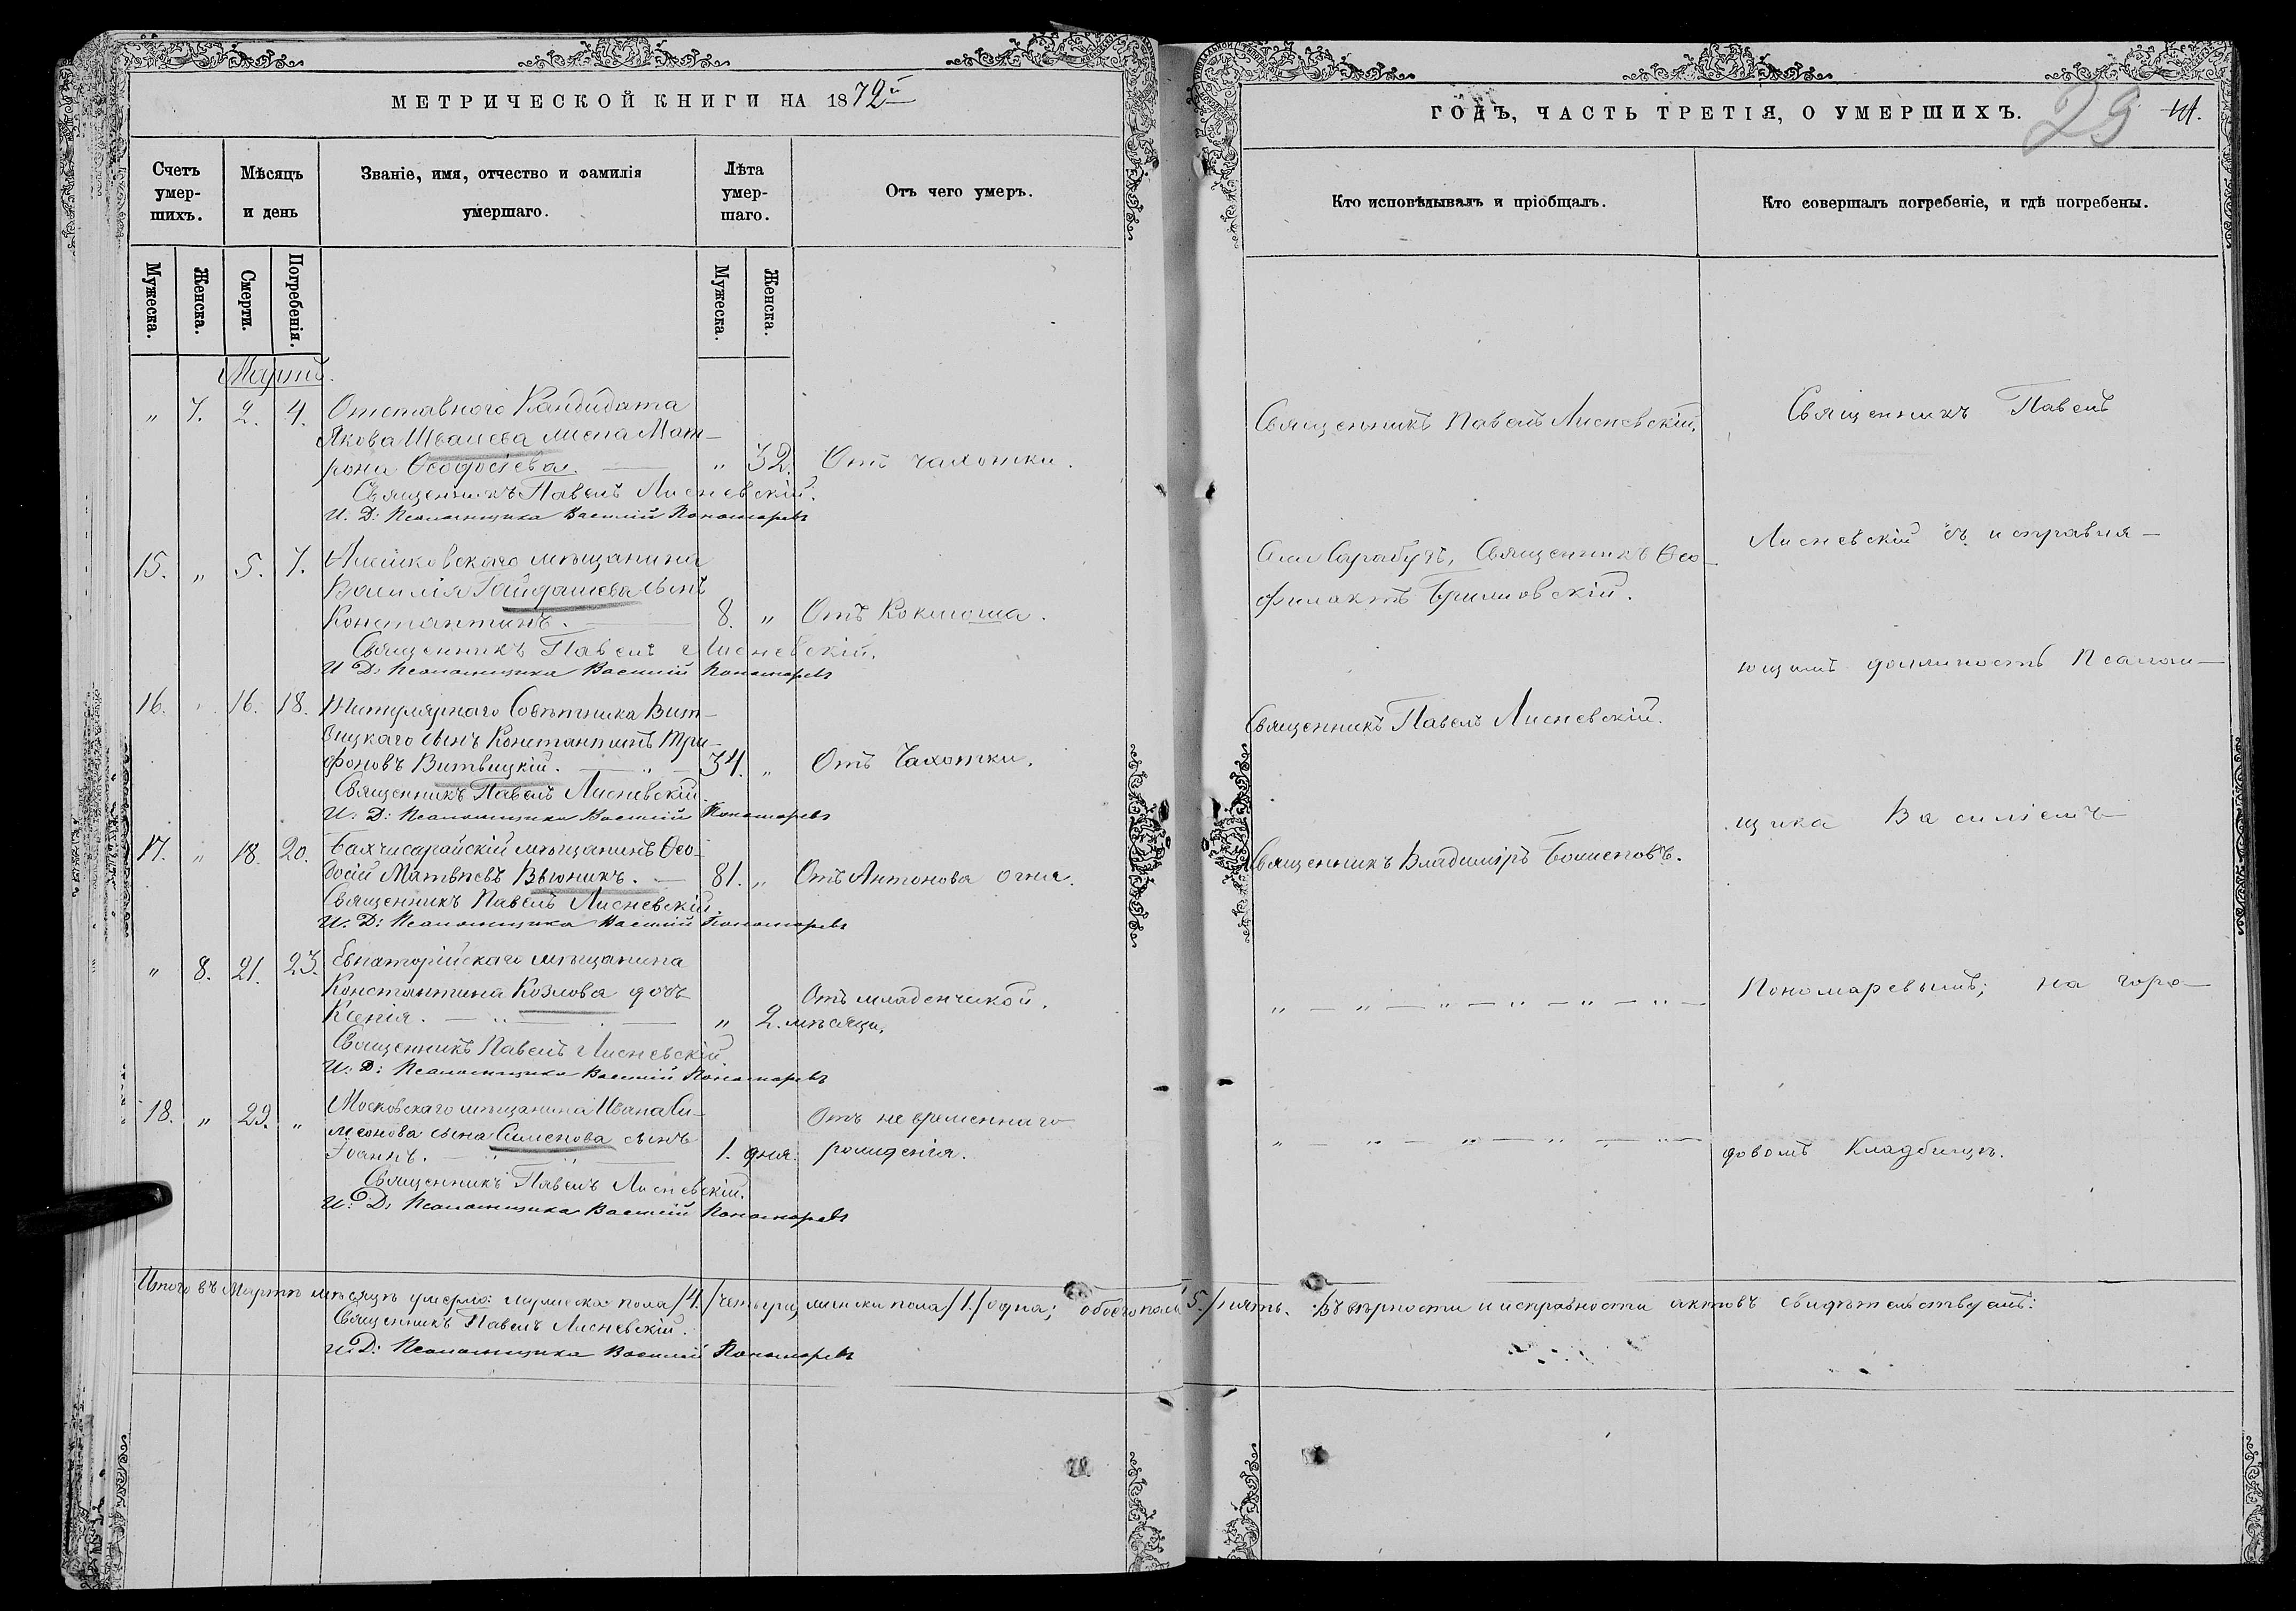 МЕТРИЧЕСКОЙ КНИГИ НА 1872й
Счетъ умер-шихъ.
Мѣсяцъ и день
Званіе, имя, отчество и фамилія умершаго.
Лѣта умер-шаго.
Отъ чего умеръ.
Мужеска.
Женска.
Смерти.
Погребенія.
Мужеска.
Женска.
Мартъ.
" 7. 2. 4. Отставного Кандидата
Якова Швалева жена Мат-
рона Ѳеодосіева. " 32. Отъ чахотки.
Священникъ Павелъ Лисневскій.
И. Д: Псаломщика Василій Пономаревъ
15. " 5. 7. Алешковскаго мѣщанина
Василія Гайдашева сынъ
Константинъ. 8. " Отъ Коклюша.
Священникъ Павелъ Лисневскій.
И Д: Псаломщика Василій Пономаревъ
16. " 16. 18. Титулярнаго Совѣтника Вит-
вицкаго сынъ Константинъ Три-
фоновъ Витвицкій. 34. " Отъ Чахотки.
Священникъ Павелъ Лисневскій
И. Д: Псаломщика Василій Пономаревъ
17. " 18. 20. Бахчисарайскій мѣщанинъ Ѳео-
досій Матвѣевъ Вьюникъ. 81. " Отъ Антонова огня.
Священникъ Павелъ Лисневскій.
И. Д: Псаломщика Василій Пономаревъ
" 8. 21. 23. Евпаторійскаго мѣщанина
Константина Козлова дочь Отъ младенческой.
Ксенія. " 2. мѣсяца.
Священникъ Павелъ Лисневскій
И. Д: Псаломщика Василій Пономаревъ
18. " 29. " Московскаго мѣщанина Ивана Си-
меонова сына Симснова сынъ Отъ не временнаго
Іоаннъ. 1. дня. рожденія.
Священникъ Павелъ Лисневскій.
И. Д: Псаломщика Василій Пономаревъ
Итого въ Мартѣ мѣсяцѣ умерло: мужеска пола /4./ четыре, женска пола /1./ одна; обоего пола 5./ пять. Въ вѣрности и исправности актовъ свидѣтельствуемъ:
Священникъ Павелъ Лисневскій.
И. Д: Псаломщика Василій Пономаревъ
ГОДЪ, ЧАСТЬ ТРЕТІЯ, О УМЕРШИХЪ.
29
Кто исповѣдывалъ и пріобщалъ.
Кто совершалъ погребеніе, и гдѣ погребены.
Священникъ Павелъ Лисневскій.
Священникъ Павелъ
Села Сарабузъ, Священникъ Ѳео-
филактъ
Лисневскій съ исправля-
ющимъ должность Псалом-
Священникъ Павелъ Лисневскій.
щика Василіемъ
Священникъ Владиміръ Боженовъ.
" — " — " — " — " — " —
Пономаревымъ; на горо-
" — " — " — " — " —
довомъ Кладбищѣ.